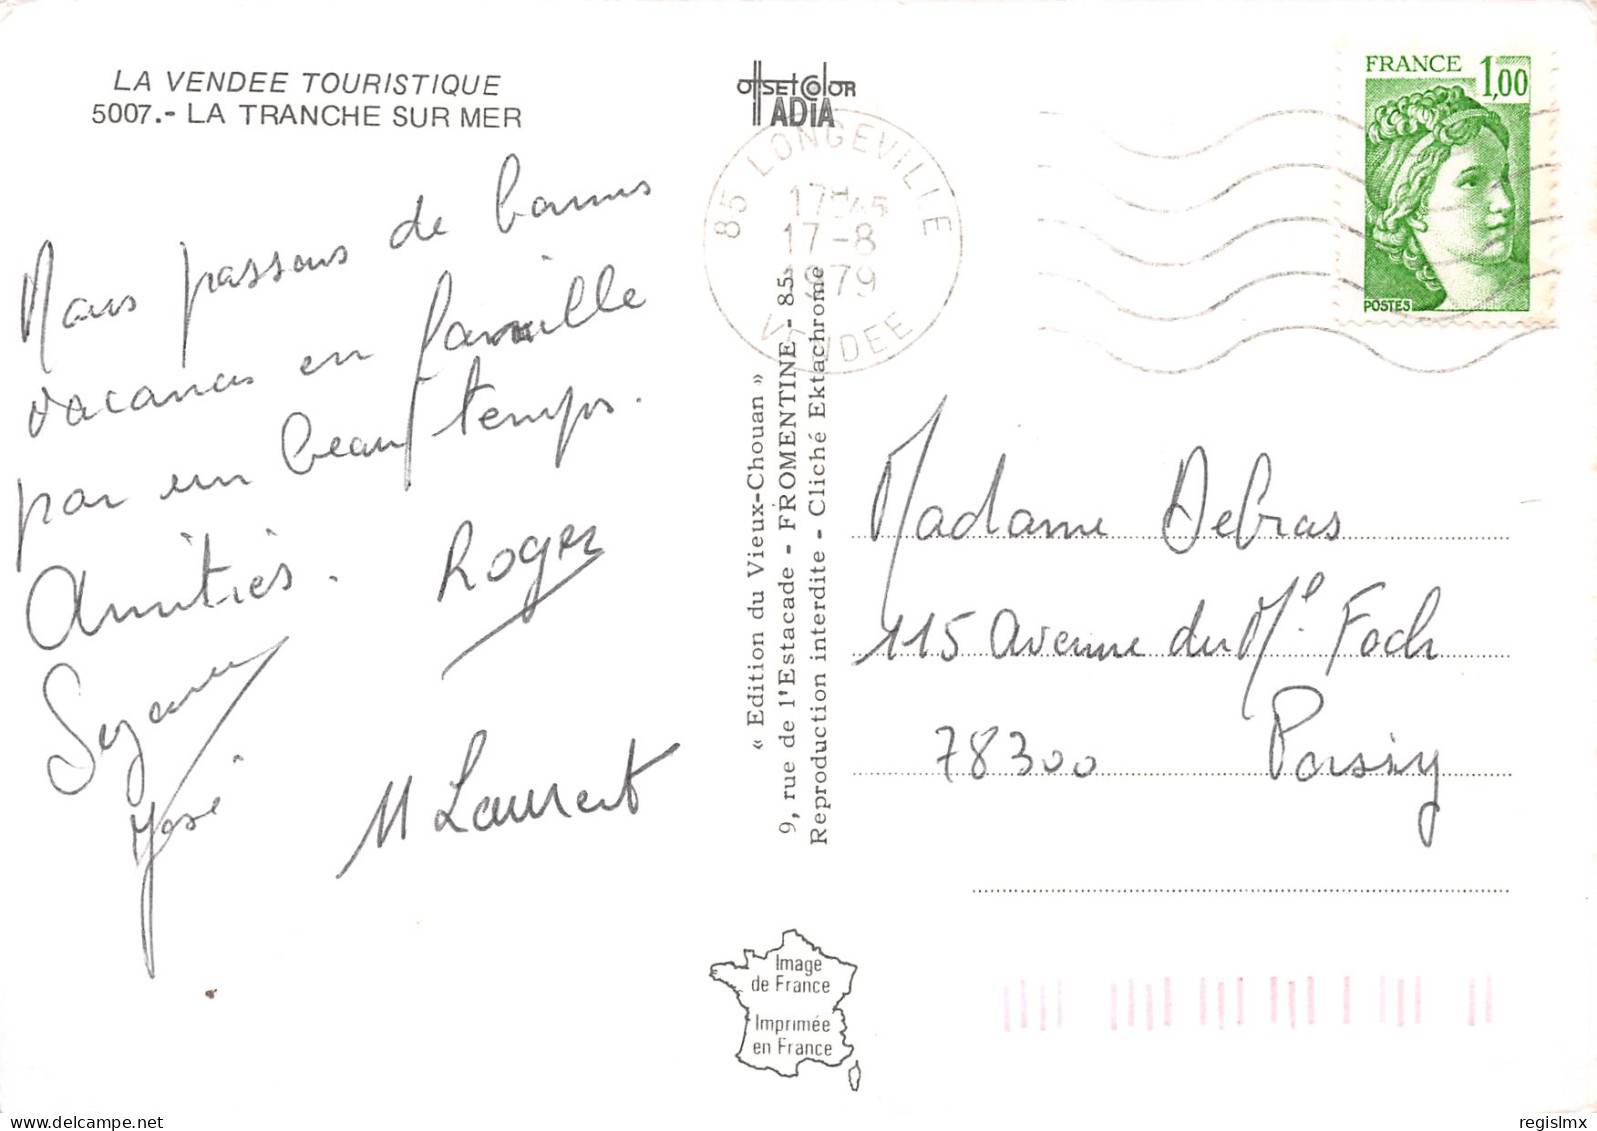 LA VENDEE TOURISTIQUE
5007.- LA TRANCHE SUR MER
Nous passons de bonnes
vacances en famille
par un beau temps.
Amitiés. Roger
Suzanne
José
M Laurent
offset color
ADIA
85 LONGEVILLE
17H45
17-8
1979
VENDEE
« Edition du Vieux-Chouan »
9, rue de l'Estacade - FROMENTINE - 85
Reproduction interdite - Cliché Ektachrome
FRANCE 1,00
POSTES
Madame Debras
115 Avenue du Ml. Foch
78300 Poissy
Image
de France
Imprimée
en France
regislmx